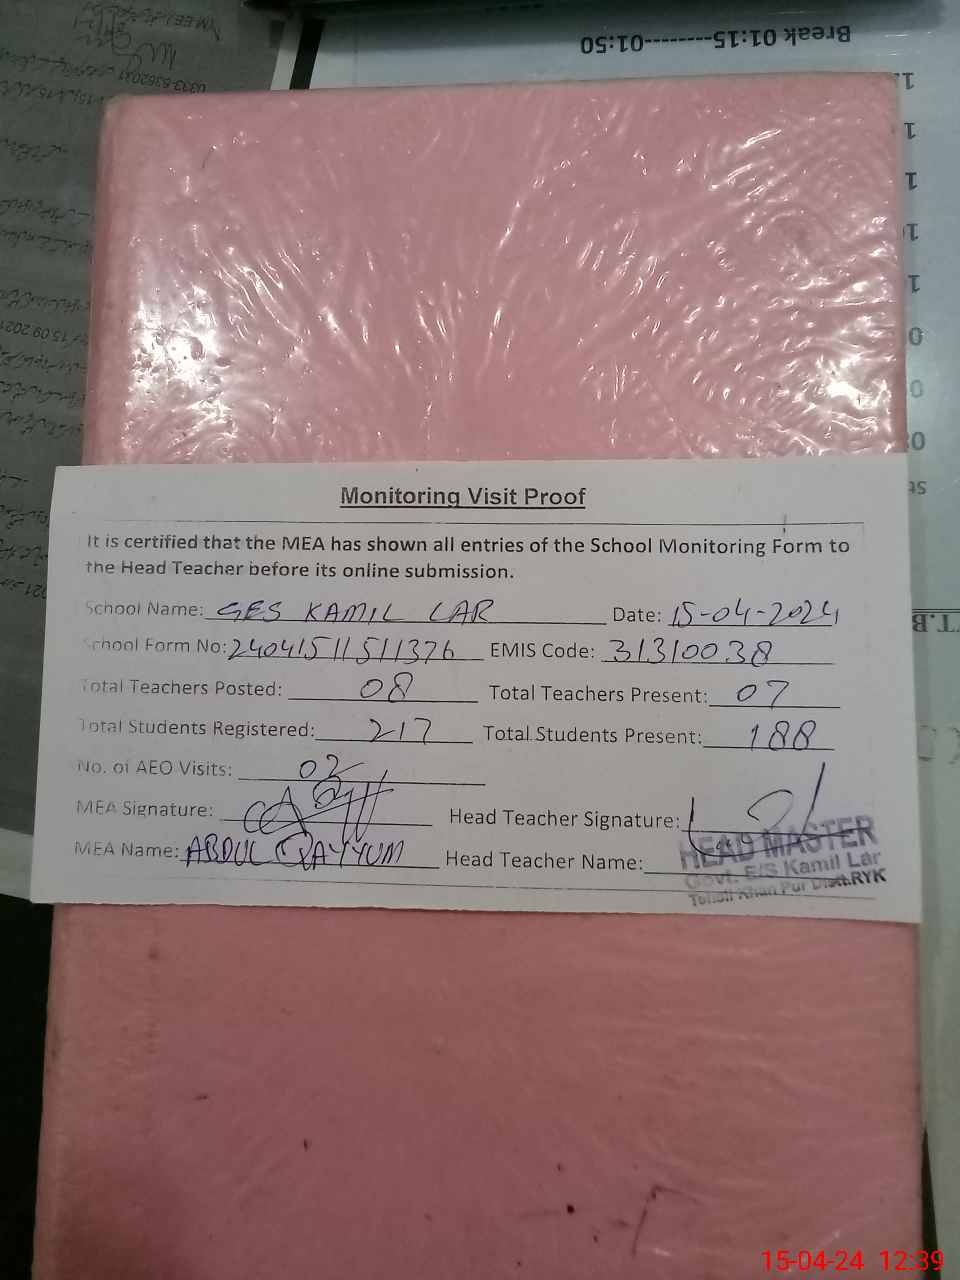 Break 01:15---------01:50
Monitoring Visit Proof
It is certified that the MEA has shown all entries of the School Monitoring Form to
the Head Teacher before its online submission.
School Name: GES KAMIL LAR Date: 15-04-2024
School Form No: 24041511511376 EMIS Code: 31310038
Total Teachers Posted: 08 Total Teachers Present: 07
Total Students Registered: 217 Total Students Present: 188
No. of AEO Visits: 02
MEA Signature: Head Teacher Signature:
MEA Name: ABDUL QAYYUM Head Teacher Name:
HEAD MASTER
Govt. E/S Kamil Lar
Tehsil Khan Pur Distt.RYK
15-04-24 12:39